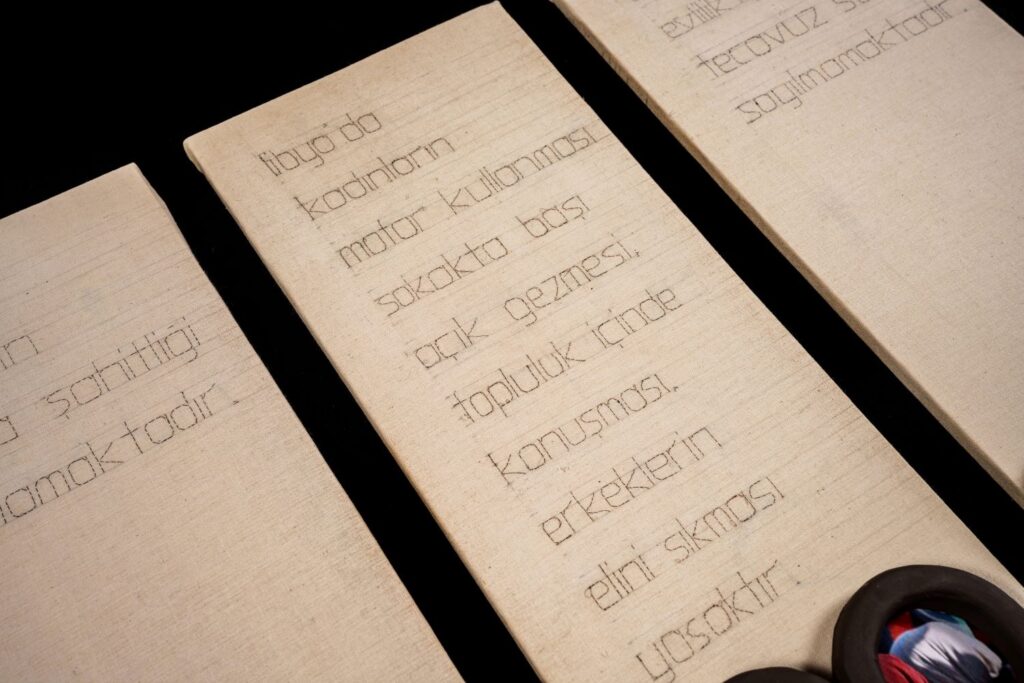 şahitliği
libya'da
kadınların
motor kullanması
sokakta başı
açık gezmesi,
topluluk içinde
konuşması,
erkeklerin
elini sıkması
yasaktır.
evlilik
tecavuz
sayılmamaktadır.